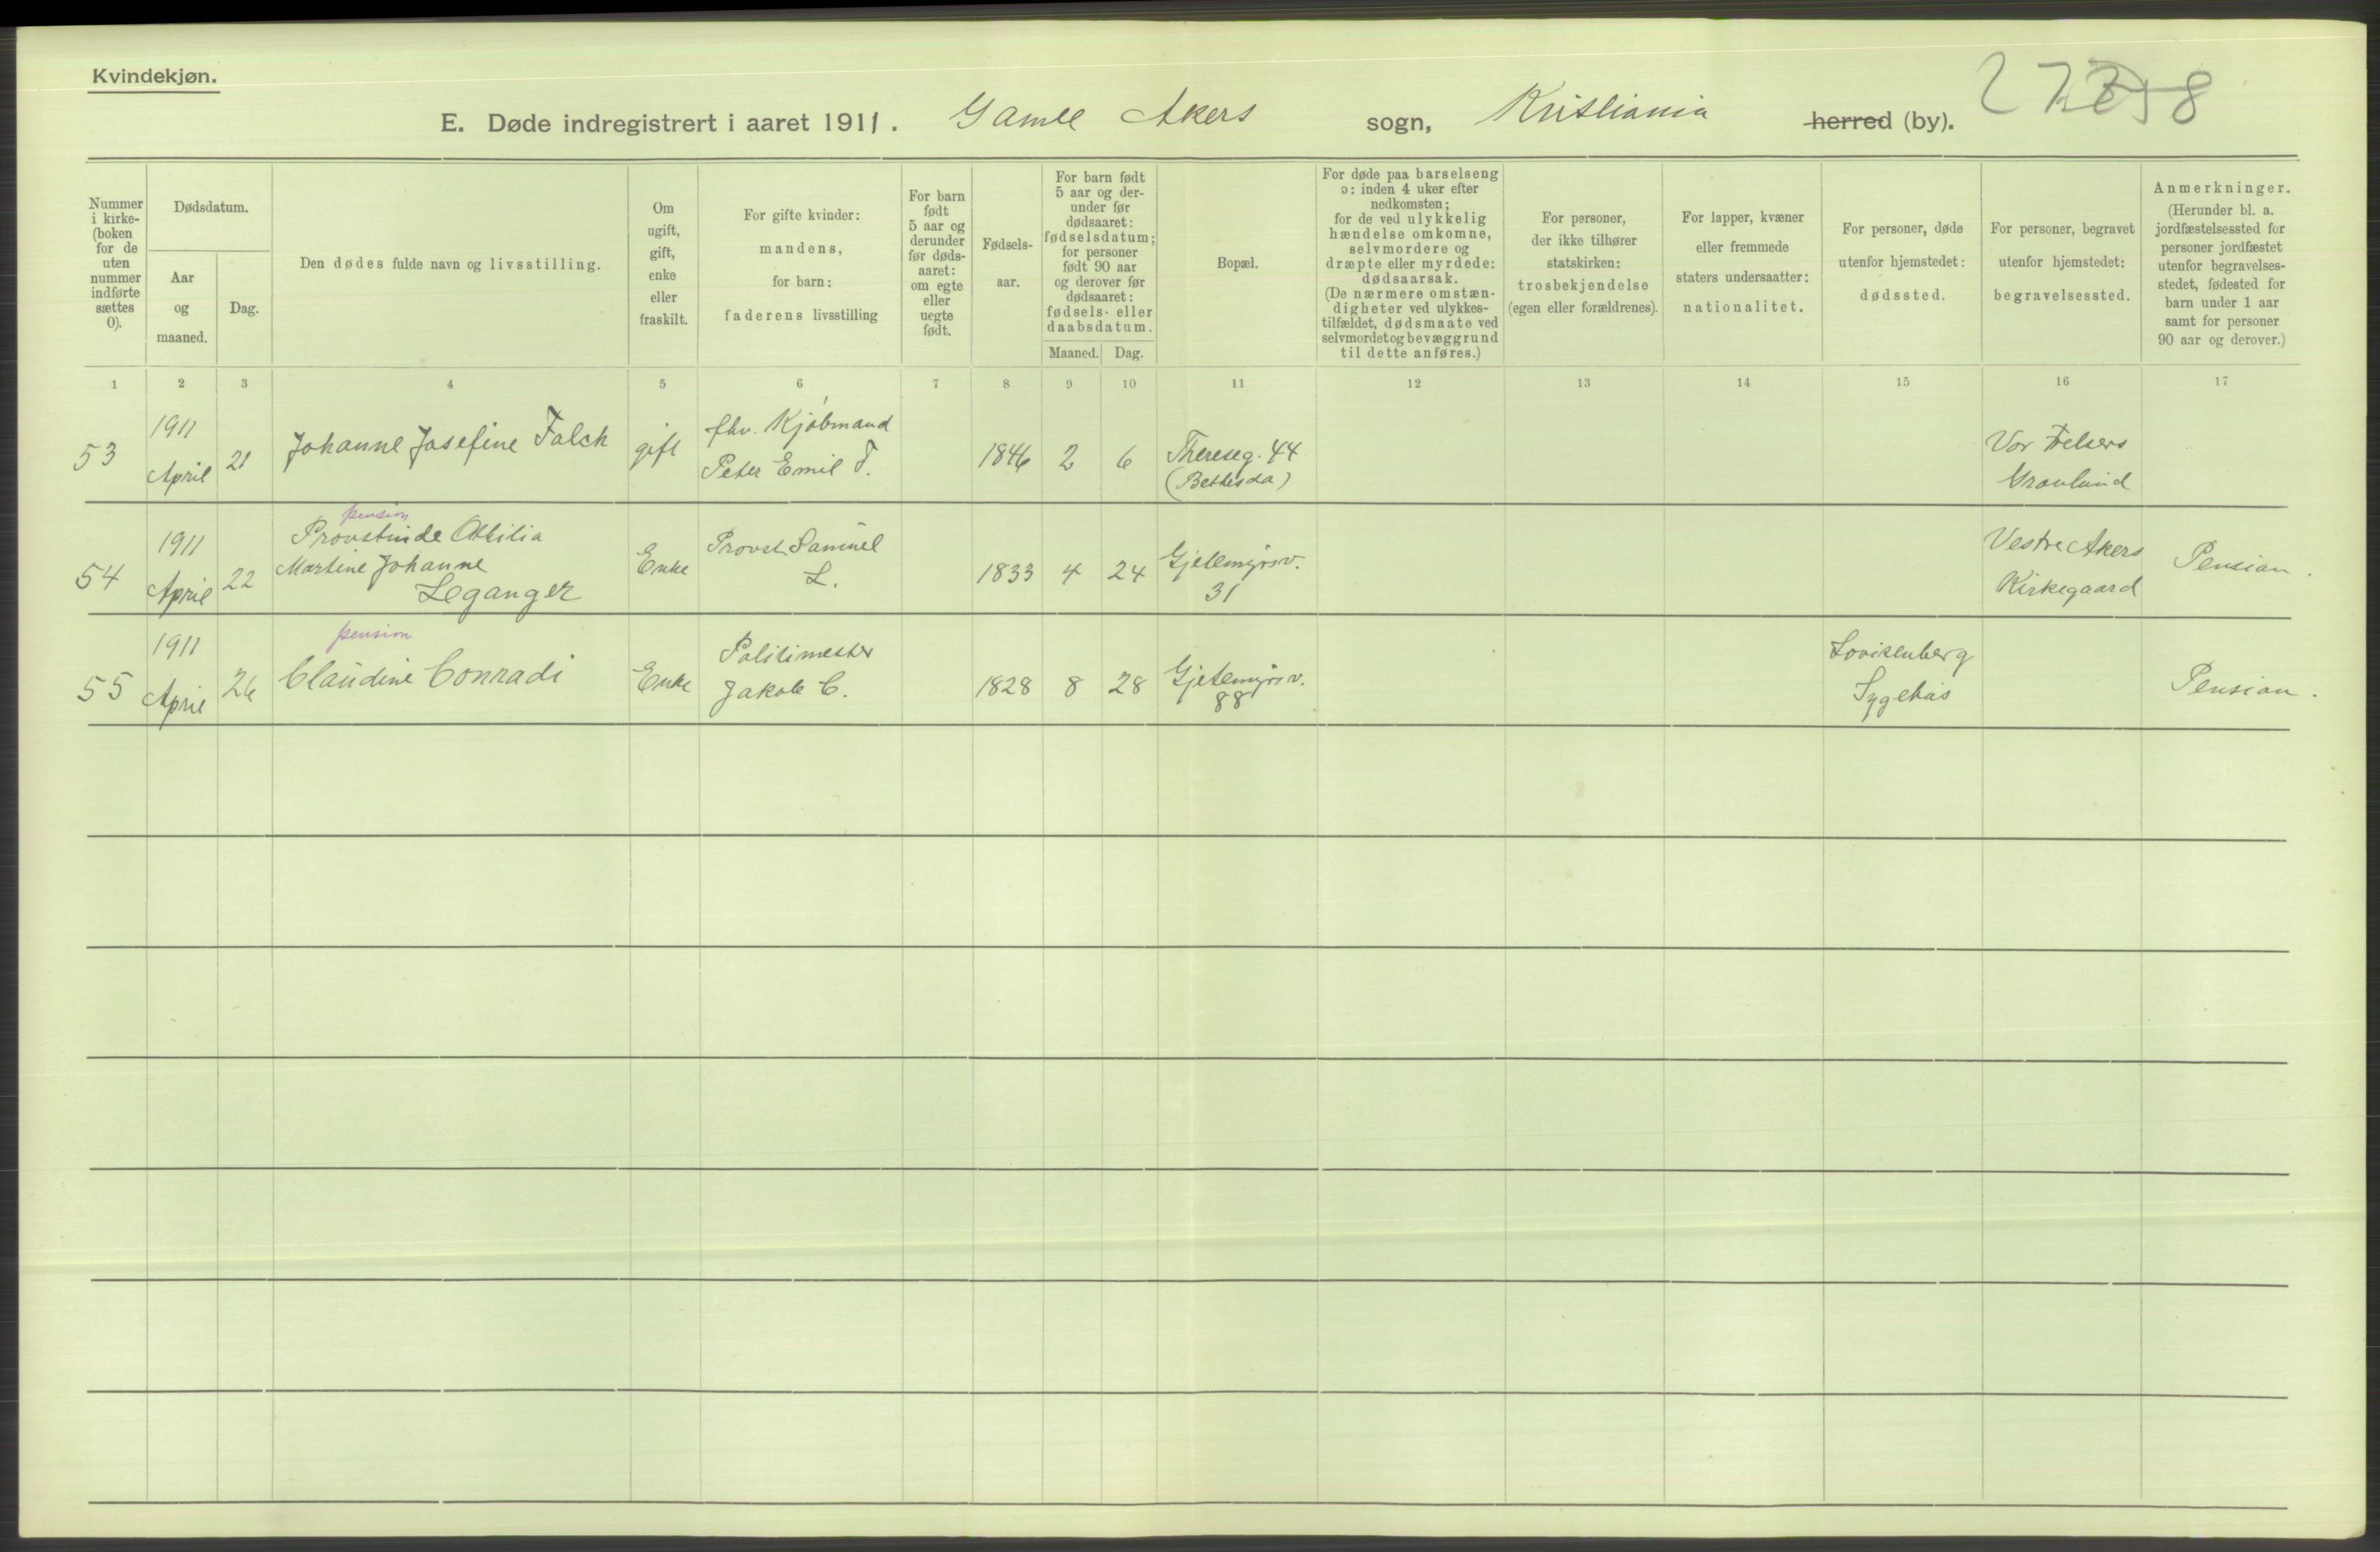 Kvindekjøn.
E. Døde indregistrert i aaret 1911. Gamle Akers sogn, Kristiania herred (by).
Nummer i kirkeboken for de uten nummer indførte sættes 0).
Dødsdatum.
Aar og maaned.
Dag.
Den dødes fulde navn og livsstilling.
Om ugift, gift, enke eller fraskilt.
For gifte kvinder: mandens, for barn: faderens livsstilling
For barn født 5 aar og derunder før dødsaaret: om egte eller uegte født.
Fødselsaar.
For barn født 5 aar og derunder før dødsaaret: fødselsdatum; for personer født 90 aar og derover før dødsaaret: fødsels- eller daabsdatum.
Maaned. Dag.
Bopæl.
For døde paa barselseng ɔ: inden 4 uker efter nedkomsten; for de ved ulykkelig hændelse omkomne, selvmordere og dræpte eller myrdede: dødsaarsak. (De nærmere omstændigheter ved ulykkestilfældet, dødsmaate ved selvmordet og bevæggrund til dette anføres.)
For personer, der ikke tilhører statskirken: trosbekjendelse (egen eller forældrenes).
For lapper, kvæner eller fremmede staters undersaatter: nationalitet.
For personer, døde utenfor hjemstedet: dødssted.
For personer, begravet utenfor hjemstedet: begravelsessted.
Anmerkninger. (Herunder bl. a. jordfæstelsessted for personer jordfæstet utenfor begravelsesstedet, fødested for barn under 1 aar samt for personer 90 aar og derover.)
1 2 3 4 5 6 7 8 9 10 11 12 13 14 15 16 17
53 1911 April 21 Johanne Josefine Falck gift fhv. Kjøbmand Peter Emil F. 1846 2 6 Thereseg. 44 (Bethesda) Vor Frelsers Gravlund
54 1911 April 22 pension Provstinde Othilia Martine Johanne Leganger Enke Provst Samuel L. 1833 4 24 Gjetemyrsv. 31 Vestre Akers Kirkegaard Pension.
55 1911 April 26 pension Claudine Conradi Enke Politimester Jakob C. 1828 8 28 Gjetemyrsv. 88 Lovisenberg Sygehus Pension.